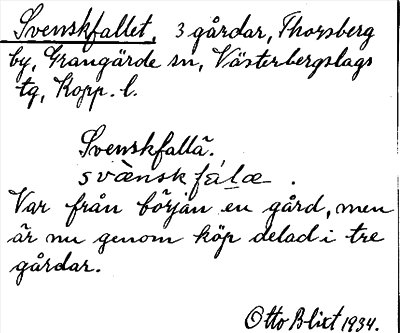 Svenskfallet, 3 gårdar, Thorsberg
by, Grangärde sn, Västerbergslags
tg, Kopp. l.
Svenskfallä.
svänskfálæ.
Var från början en gård, men
är nu genom köp delad i tre
gårdar.
Otto Blixt 1934.